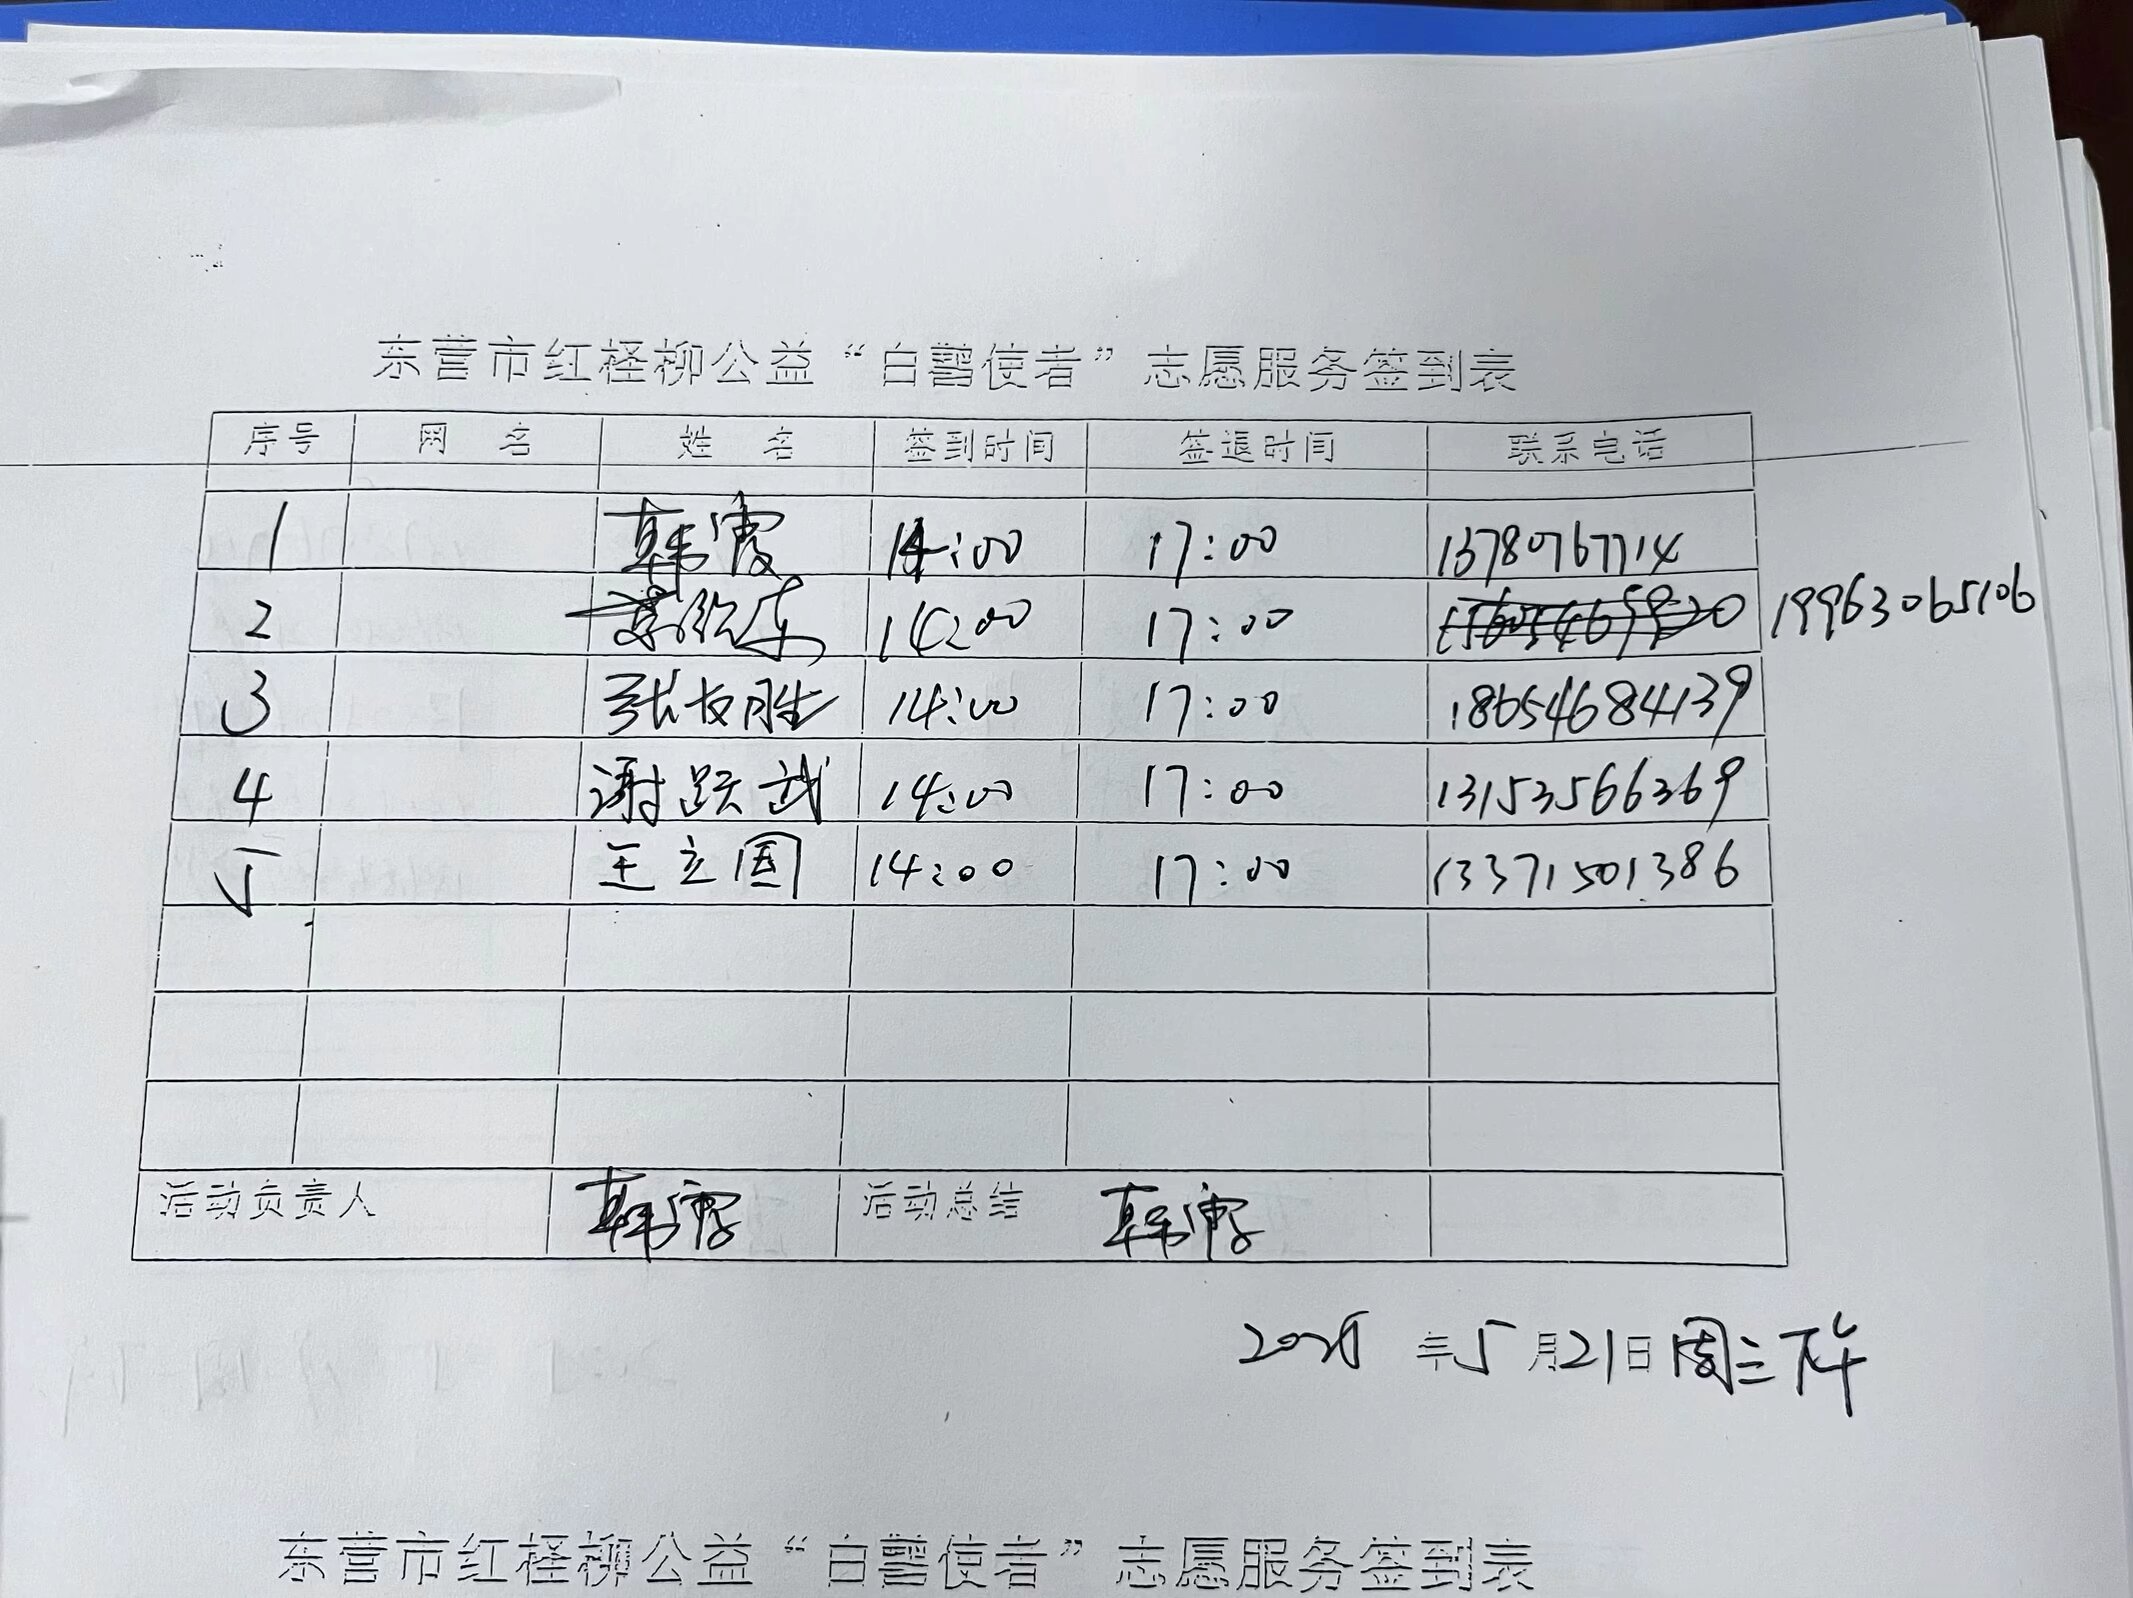 东营市红柽柳公益“白鹭使者”志愿服务签到表
序号 网 名 姓 名 签到时间 签退时间 联系电话
1 韩霞 14:00 17:00 13780767714
2 14:00 17:00 19963065106
3 张友胜 14:00 17:00 18654684139
4 谢跃武 14:00 17:00 13153566369
5 王立国 14:00 17:00 13371501386
活动负责人 韩霞 活动总结 韩霞
2025年5月21日周三下午
东营市红柽柳公益“白鹭使者”志愿服务签到表